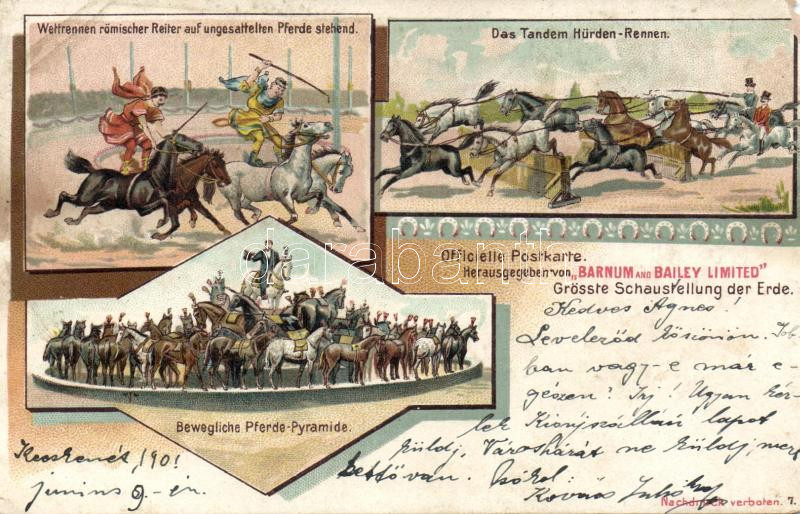 Wettrennen römischer Reiter auf ungesattelten Pferde stehend.
Das Tandem Hürden-Rennen.
Officielle Postkarte.
Herausgegeben von „BARNUM AND BAILEY LIMITED"
Grösste Schaustellung der Erde.
Bewegliche Pferde-Pyramide.
Kedves Agnes!
Leveleződ köszönöm. Job-
ban vagy-e már e-
gészen? Irj! Ugyan kér-
lek lapot
küldj, Városházát ne küldj, mert
kettő van. Csókol
Kovács
Kecskemét, 1901
junius 9-én.
Nachdruck verboten. 7.
darabanth